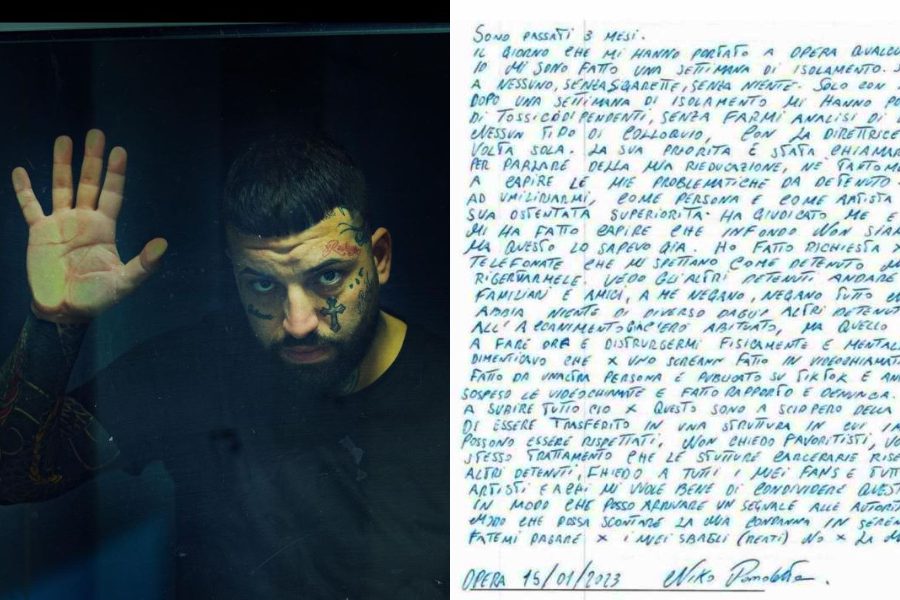 SONO PASSATI 3 MESI.
IL GIORNO CHE MI HANNO PORTATO A OPERA QUALCU
IO MI SONO FATTO UNA SETTIMANA DI ISOLAMENTO. S
A NESSUNO, SENZA SIGARETTE, SENZA NIENTE. SOLO CON
DOPO UNA SETTIMANA DI ISOLAMENTO MI HANNO PO
DI TOSSICODIPENDENTI, SENZA FARMI ANALISI DI
NESSUN TIPO DI COLLOQUIO, CON LA DIRETTRICE
VOLTA SOLA. LA SUA PRIORITA È STATA CHIAMAR
PER PARLARE DELLA MIA RIEDUCAZIONE, NE TANTOME
A CAPIRE LE MIE PROBLEMATICHE DA DETENUTO.
AD UMILIRIARMI, COME PERSONA E COME ARTISTA
SUA OSTENTATA SUPERIORITA. HA GIUDICATO ME E
MI HA FATTO CAPIRE CHE INFONDO NON SIAM
MA QUESTO LO SAPEVO GIA. HO FATTO RICHIESTA X
TELEFONATE CHE MI SPETTANO COME DETENUTO MA
RIGERTARMELE. VEDO GLI ALTRI DETENUTI ANDARE
FAMILIARI E AMICI, A ME NEGANO, NEGANO TUTTO
ABBIA NIENTE DI DIVERSO DAGLI ALTRI DETENUT
ALL'ACCANIMENTO ABITUATO, MA QUELLO
A FARE ORA È DISTRURGERMI FISICAMENTE E MENTAL
DIMENTICAVO CHE X UNO SCREANN FATTO IN VIDEOCHIAMAT
FATTO DA UNALTRA PERSONA E PUBLICATO SU TIKTOK E AN
SOSPESO LE VIDEOCHIAMATE E FATTO RAPPORTO E DENUNCIA.
A SUBIRE TUTTO CIO X QUESTO SONO A SCIOPERO DELLA
DI ESSERE TRASFERITO IN UNA STRUTTURA IN CUI I
POSSONO ESSERE RISPETTATI, NON CHIEDO FAVORITISTI, VO
STESSO TRATTAMENTO CHE LE STUTTURE CARCERARIE RISE
ALTRI DETENUTI, CHIEDO A TUTTI I MIEI FANS E TUTT
ARTISTI E A CHI MI VUOLE BENE DI CONDIVIDERE QUEST
IN MODO CHE POSSO ARRIVARE UN SEGNALE ALLE AUTORIT
MODO CHE POSSA SCONTARE LA MIA CONDANNA IN SEREN
FATEMI PAGARE X I MIEI SBAGLI (REATI) NO X LA M
OPERA 15/01/2023 Niko Pandetta.